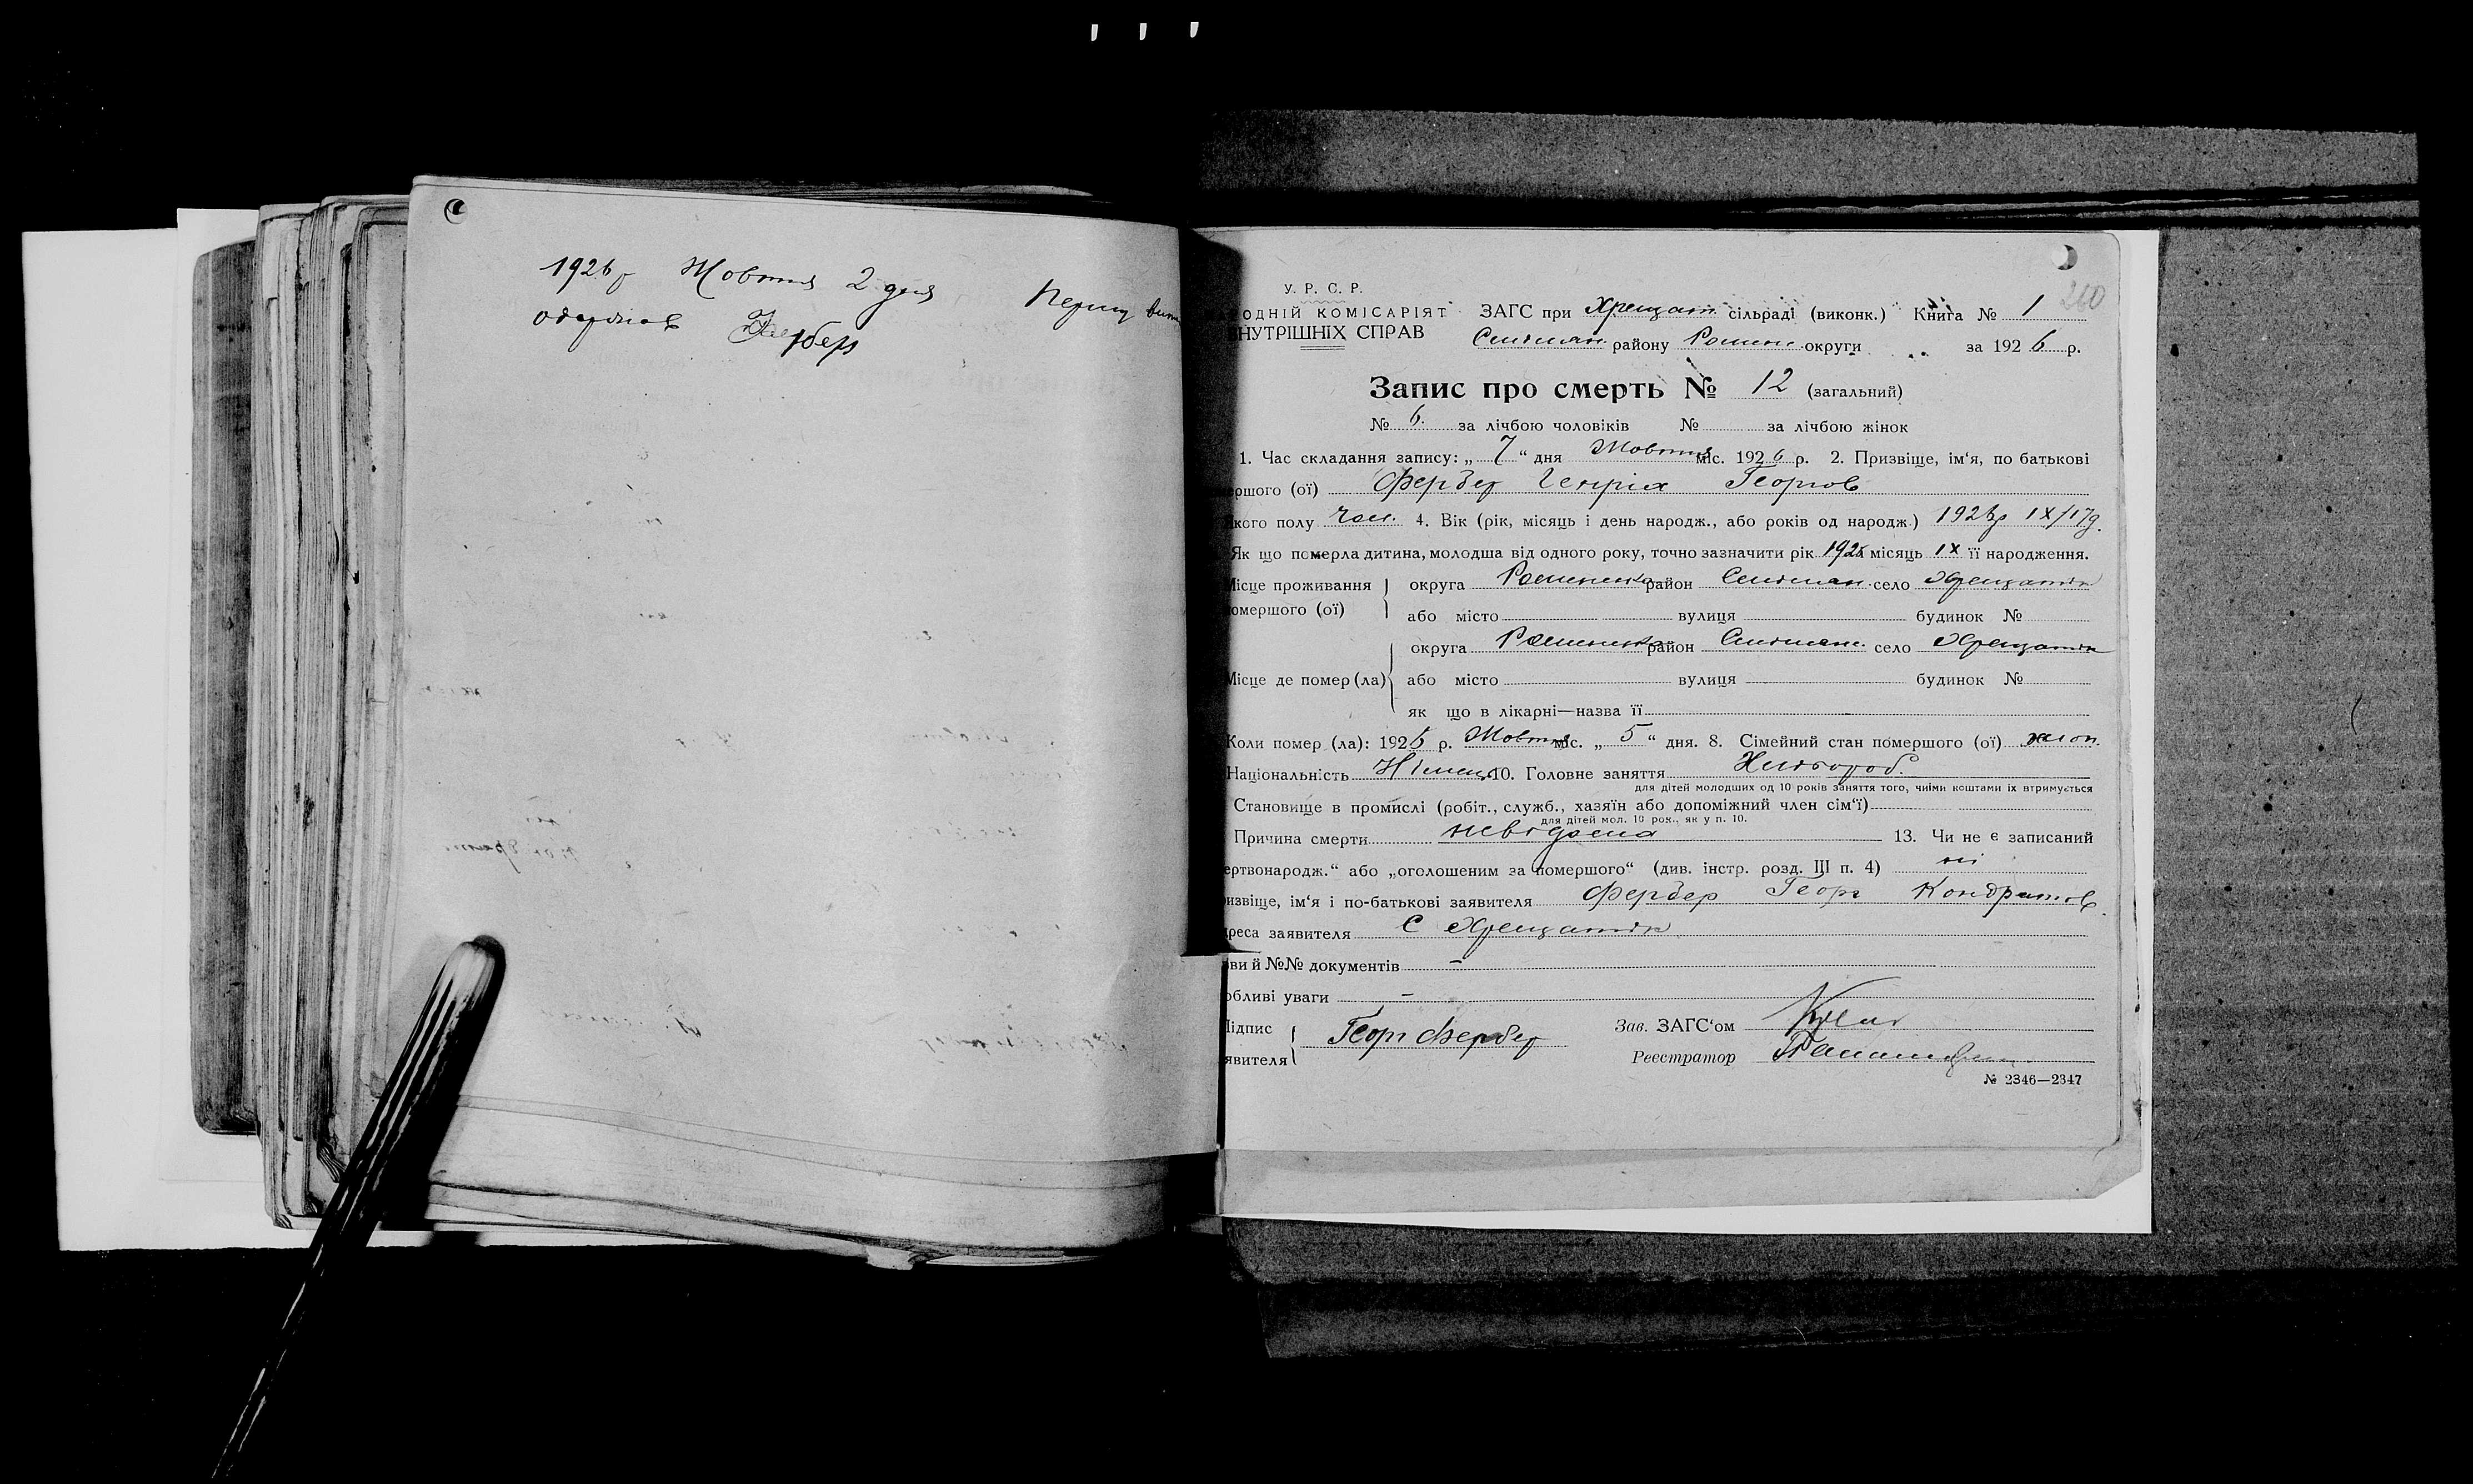 1926 р Жовтня 2 дня Перший
одержав Фербер
210
У. Р. С. Р.
ОДНІЙ КОМІСАРІЯТ ЗАГС при Хрещат. сільраді (виконк.) Книга № 1
ВНУТРІШНІХ СПРАВ району Ромен. округи за 1926 р.
Запис про смерть № 12 (загальний)
№ 6. за лічбою чоловіків № за лічбою жінок
1. Час складання запису: „ 7 “ дня Жовтня міс. 1926 р. 2. Призвіще, ім‘я, по батькові
ершого (ої) Фербер Генріх Георгов
якого полу чол. 4. Вік (рік, місяць і день народж., або років од народж.) 1926р IX/17д.
Як що померла дитина, молодша від одного року, точно зазначити рік 1926 місяць IX її народження.
Місце проживання округа Роменська район село Хрещатік
омершого (ої) або місто вулиця будинок №
округа Роменська район село Хрещатік
Місце де помер (ла) або місто вулиця будинок №
як що в лікарні—назва її
Коли помер (ла): 1926 р. Жовтня міс. „ 5 “ дня. 8. Сімейний стан помершого (ої)
Національність Німець 10. Головне заняття Хлібороб.
для дітей молодших од 10 років заняття того, чиїми коштами їх втримується
Становище в промислі (робіт., служб., хазяїн або допоміжний член сім‘ї)
для дітей мол. 10 рок., як у п. 10.
Причина смерти невідома 13. Чи не є записаний
ертвонародж.“ або „оголошеним за помершого“ (див. інстр. розд. III п. 4) ні
извіще, ім‘я і по-батькові заявителя Фербер Георг Кондратов
реса заявителя С Хрещатік
ови й №№ документів –
обливі уваги –
Підпис Георг Фербер Зав. ЗАГС‘ом
явителя Реєстратор
№ 2346—2347